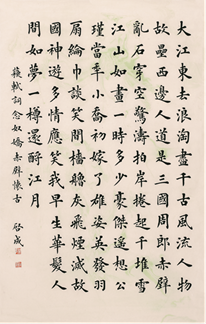 大江東去浪淘盡千古風流人物
故壘西邊人道是三國周郎赤壁
亂石穿空驚濤拍岸捲起千堆雪
江山如畫一時多少豪傑遙想公
瑾當秊小喬初嫁了雄姿英發羽
扇綸巾談笑間檣艣灰飛煙滅故
國神遊多情應笑我早生華髮人
間如夢一樽還酹江月
蘇軾詞念奴嬌赤壁懷古